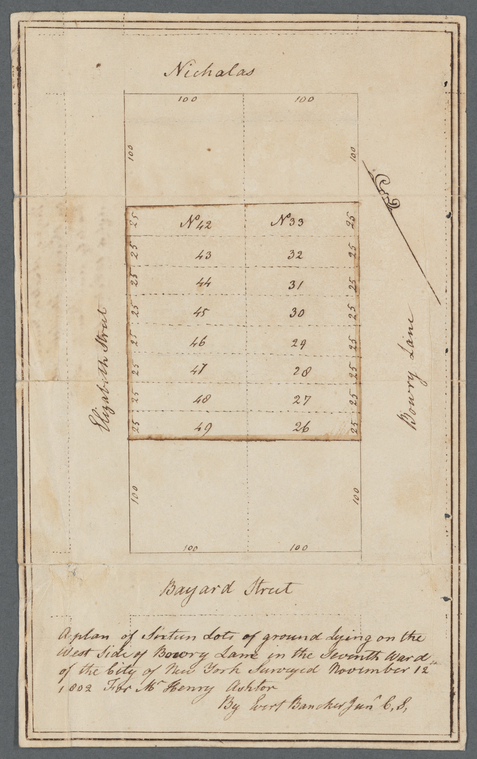 Nicholas
100 100
100 100
25 N 42 N 33 25
25 43 32 25
25 44 31 25
25 45 30 25
25 46 29 25
25 47 28 25
25 48 27 25
25 49 26 25
Elizabeth Street
Bowry Lane
100 100
100 100
Bayard Street
A plan of Sixteen Lots of ground lying on the
West Side of Bowry Lane in the Seventh Ward
of the City of New York Surveyed November 12
1802 For Mr Henry Ashtor
By Evert Bancker Junr C, S,